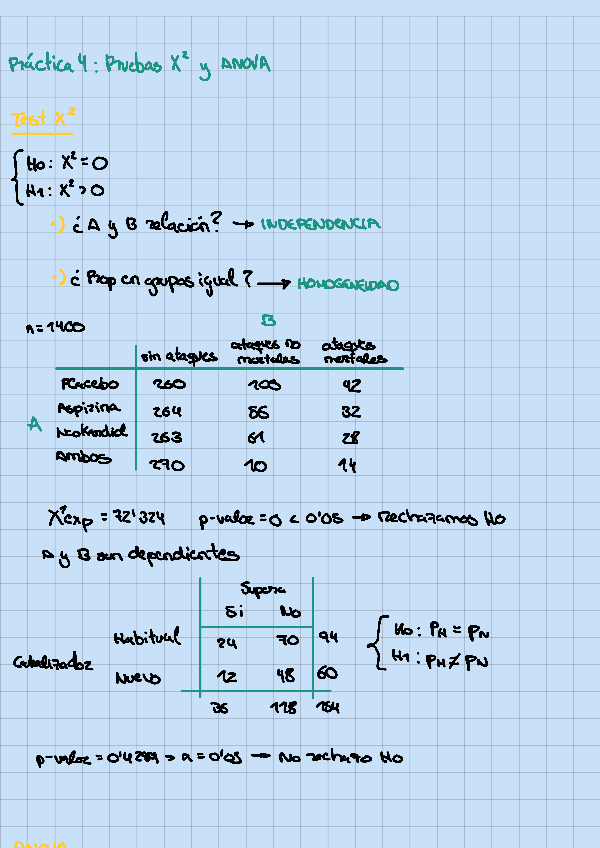 Práctica 4: Pruebas X² y ANOVA
Test X²
H0: X² = 0
H1: X² > 0
·) ¿A y B relación? → INDEPENDENCIA
·) ¿Prop en grupos igual? → HOMOGENEIDAD
n = 1400
B
sin ataques ataques no mortales ataques mortales
Placebo 260 105 42
Aspirina 264 86 32
A
Neokardiol 263 61 28
Ambos 270 10 14
X²exp = 72'324 p-valor = 0 < 0'05 → Rechazamos H0
A y B son dependientes
Supera
Si No
Habitual 24 70 94
H0: PH = PN
Catalizador
Nuevo 12 48 60
H1: PH ≠ PN
36 118 154
p-valor = > α = 0'05 → No rechazo H0
ANOVA